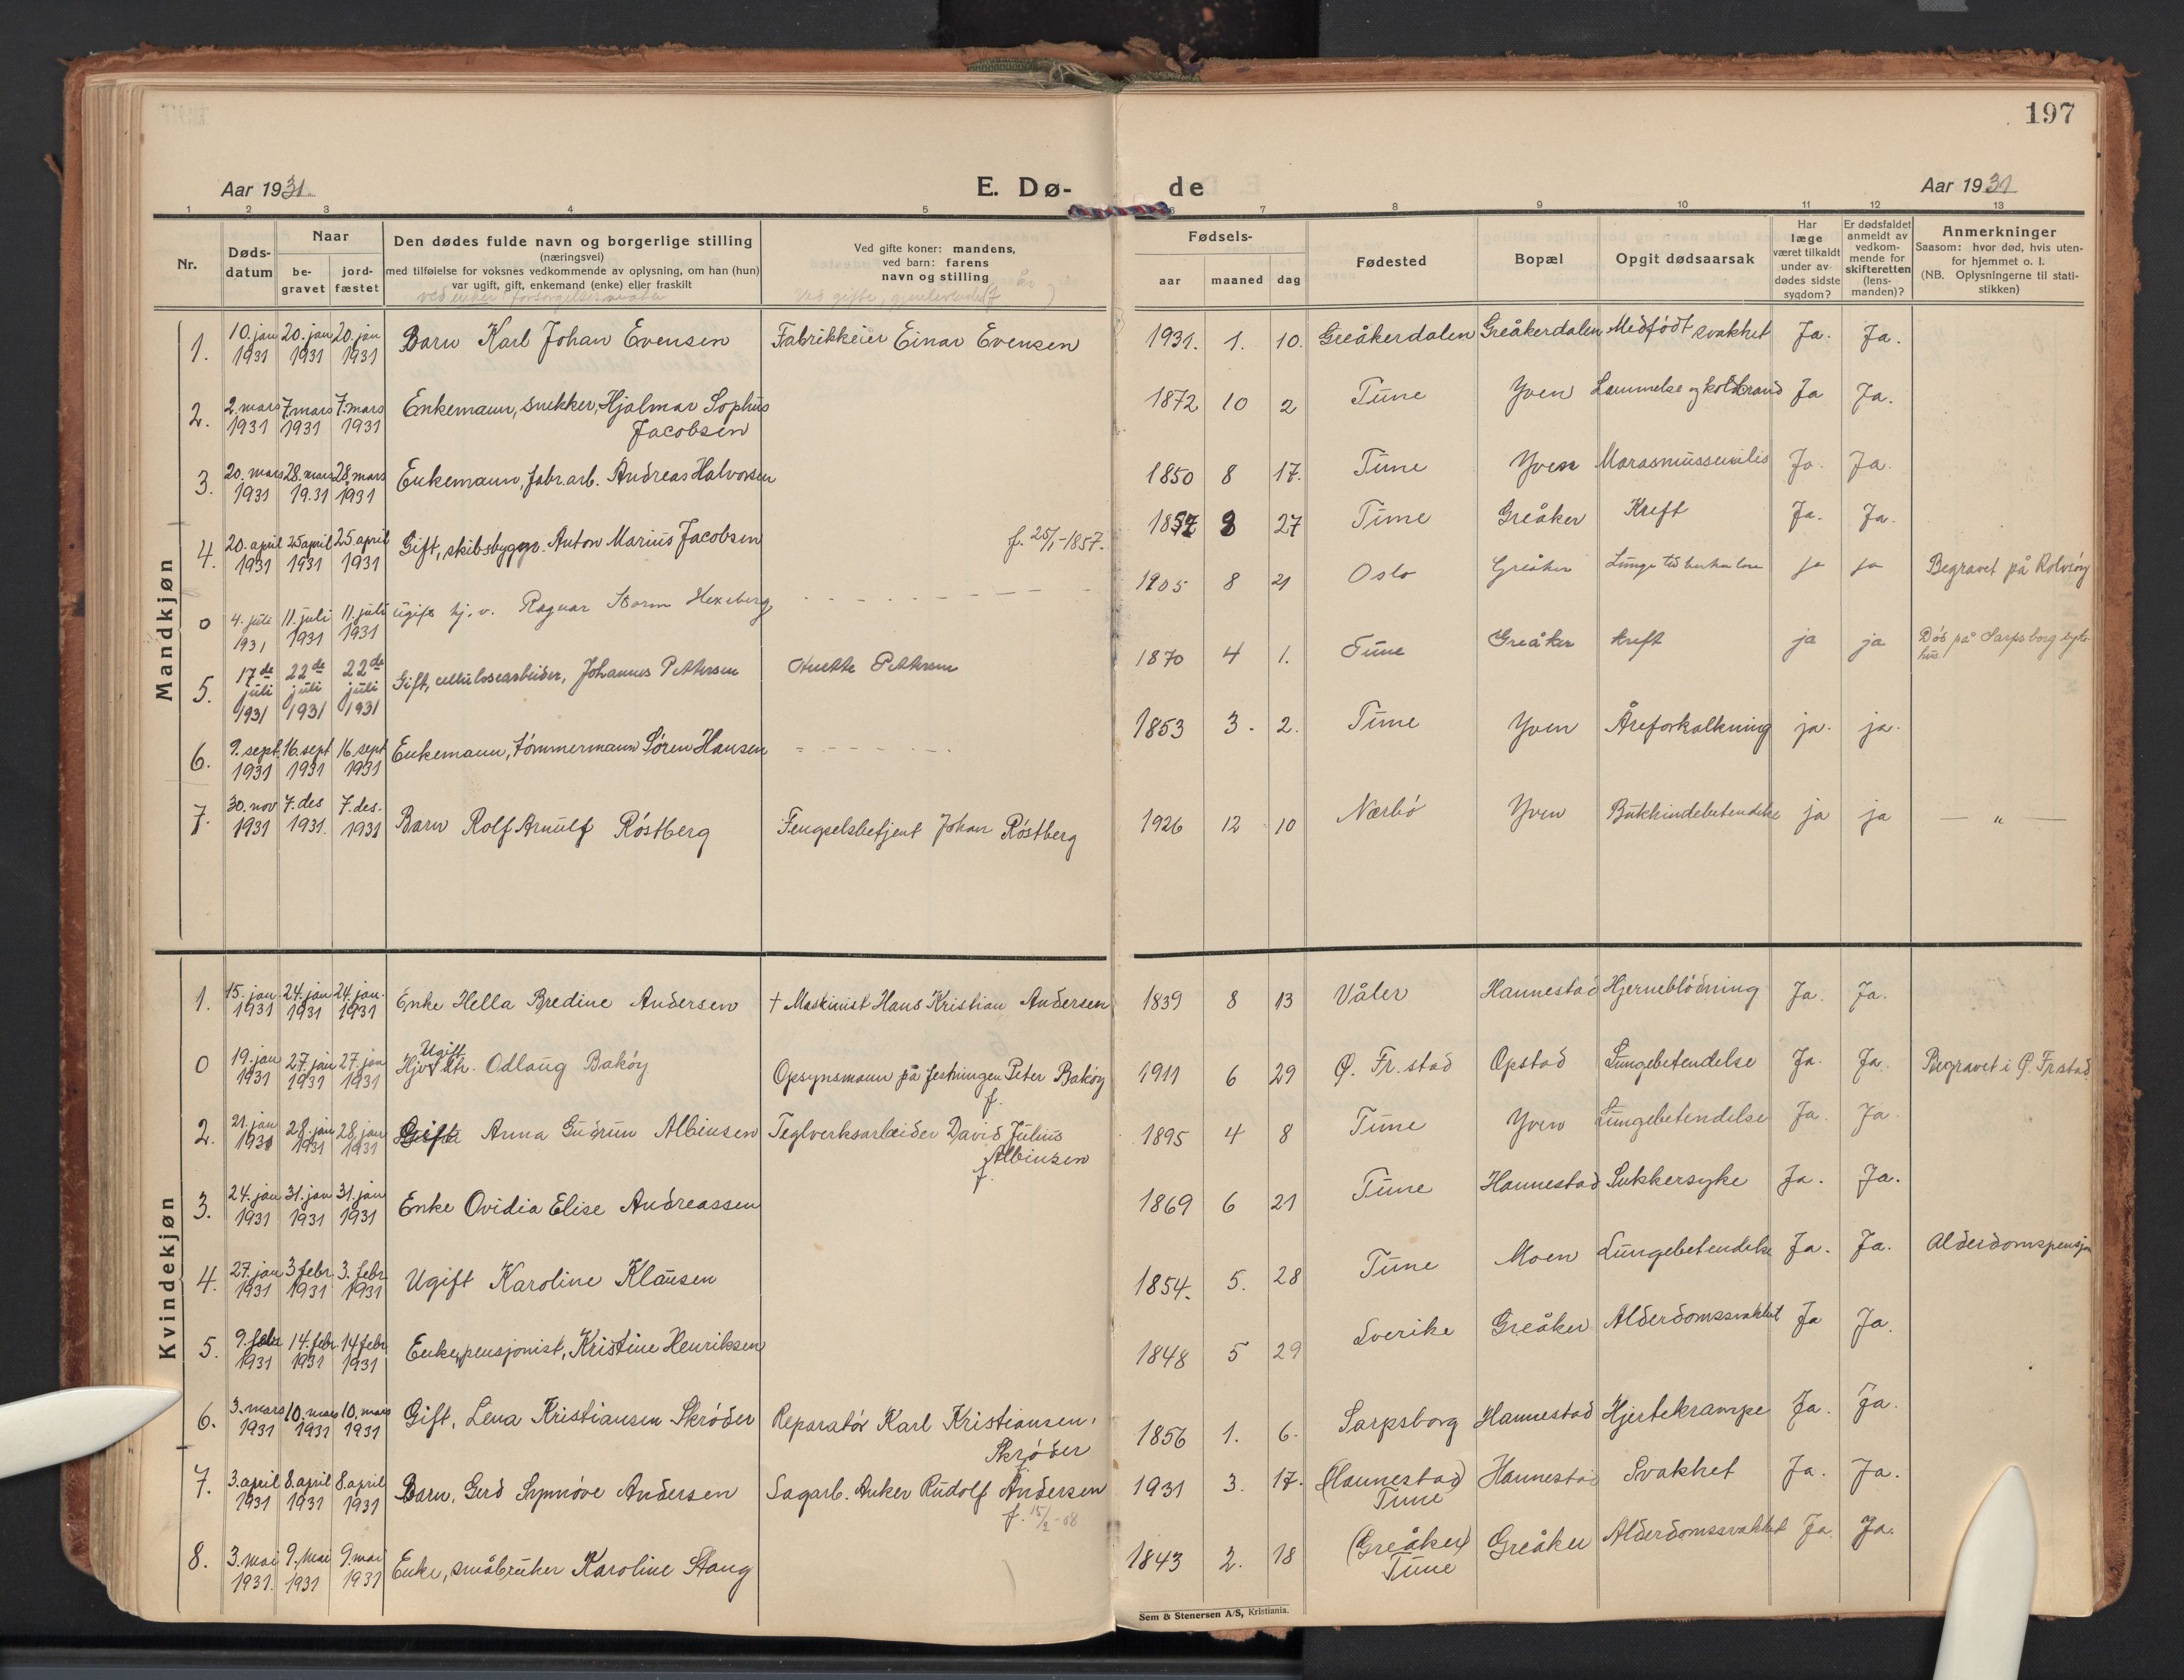 197
Aar 1931
E. Dø-
de
Aar 1931
1 2 3 4 5 6 7 8 9 10 11 12 13
Nr.
Døds-
datum
Naar
be-
gravet
jord-
fæstet
Den dødes fulde navn og borgerlige stilling
(næringsvei)
med tilføielse for voksnes vedkommende av oplysning, om han (hun)
var ugift, gift, enkemand (enke) eller fraskilt
Ved gifte koner: mandens,
ved barn: farens
navn og stilling
Fødsels-
aar maaned dag
Fødested
Bopæl
Opgit dødsaarsak
Har
læge
været tilkaldt
under av-
dødes sidste
sygdom?
Er dødsfaldet
anmeldt av
vedkom-
mende for
skifteretten
(lens-
manden)?
Anmerkninger
Saasom: hvor død, hvis uten-
for hjemmet o. l.
(NB. Oplysningerne til stati-
stikken)
Mandkjøn
1. 10. jan 20. jan 20. jan Barn Karl Johan Evensen Fabrikkeier Einar Evensen 1931. 1. 10. Greåkerdalen Greåkerdalen Medfödt svakhet Ja. Ja.
1931 1931 1931
2. 2. mars 7. mars 7. mars Enkemann, snekker, Hjalmar Sophus 1872 10 2 Tune Yven Lammelse og koldbrand Ja Ja.
1931 1931 1931 Jacobsen
3. 20. mars 28. mars 28. mars Enkemann, fabr.arb. Andreas Halvorsen 1850 8 17. Tune Yven Marasmus senilis Ja. Ja.
1931 19.31 1931
4. 20. april 25 april 25. april Gift, skibsbygger. Anton Marius Jacobsen f. 25/1-1857. 1857 8 27 Tune Greåker Kreft Ja. Ja.
1931 1931 1931
0 4. juli 11. juli 11. juli ugift hj. v. Ragnar Storm Hexeberg 1905 8 21 Oslo Greåker Lunge tuberkulose ja ja Begravet på Rolvsøy
1931 1931 1931
5. 17de 22de 22de Gift, cellulosearbeider, Johannes Pettersen Anette Pettersen 1870 4 1. Tune Greåker kreft ja ja Död på Sarpsborg syke-
hus
juli juli juli
1931 1931 1931
6. 9. sept. 16. sept 16. sept Enkemann, tömmermann Sören Hansen 1853 3. 2. Tune Yven Åreforkalkning ja. ja.
1931 1931 1931
7. 30. nov 7. des 7. des. Barn Rolf Arnulf Röstberg Fengselsbetjent Johan Röstberg 1926 12 10 Nærbö Yven Bukhindebetendelse ja ja — " —
1931 1931. 1931
Kvindekjøn
1. 15. jan 24. jan 24. jan. Enke Hella Bredine Andersen † Maskinist Hans Kristian Andersen 1839 8 13 Våler Hannestad Hjerneblödning Ja. Ja.
1931 1931 1931
Ugift
0 19. jan 27. jan 27. jan Odlaug Baköy Opsynsmann på festningen Peter Baköy 1911 6 29 Ø. Fr.stad Opstad Lungebetendelse Ja. Ja. Begravet i Ø. Frstad.
1931 1931 1931 f.
2. 21. jan 28. jan 28. jan Gift Anna Gudrun Albinsen Teglverksarbeider David Julius 1895 4 8 Tune Yven Lungebetendelse Ja. Ja.
1931 1931 1931 Albinsen
f.
3. 24. jan 31. jan 31. jan Enke Ovidia Elise Andreassen 1869 6 21 Tune Hannestad Sukkersyke Ja. Ja.
1931 1931 1931
4. 27. jan 3 febr. 3. febr. Ugift Karoline Klausen 1854. 5. 28 Tune Moen Lungebetendelse Ja. Ja. Alderdomspensjon
1931 1931 1931
5. 9. febr 14. febr. 14 febr. Enke, pensjonist, Kristine Henriksen 1848 5 29 Sverike Greåker Alderdomssvakhet Ja Ja.
1931 1931 1931
6. 3. mars 10. mars 10. mars Gift, Lena Kristiansen Skröder Reparatör Karl Kristiansen, 1856 1. 6. Sarpsborg Hannestad Hjertekrampe Ja. Ja.
1931 1931 1931 Skröder
7. 3. april 8. april 8. april Barn, Gerd Synnöve Andersen Sagarb. Anker Rudolf Andersen 1931 3. 17. (Hannestad) Hannestad Svakhet Ja. Ja.
1931 1931 1931 f. 15/2-08 Tune
8. 3. mai 9. mai 9. mai Enke, småbruker Karoline Stang 1843 2. 18 (Greåker) Greåker Alderdomssvakhet Ja. Ja.
1931. 1931 1931 Tune
Sem & Stenersen A/S, Kristiania.